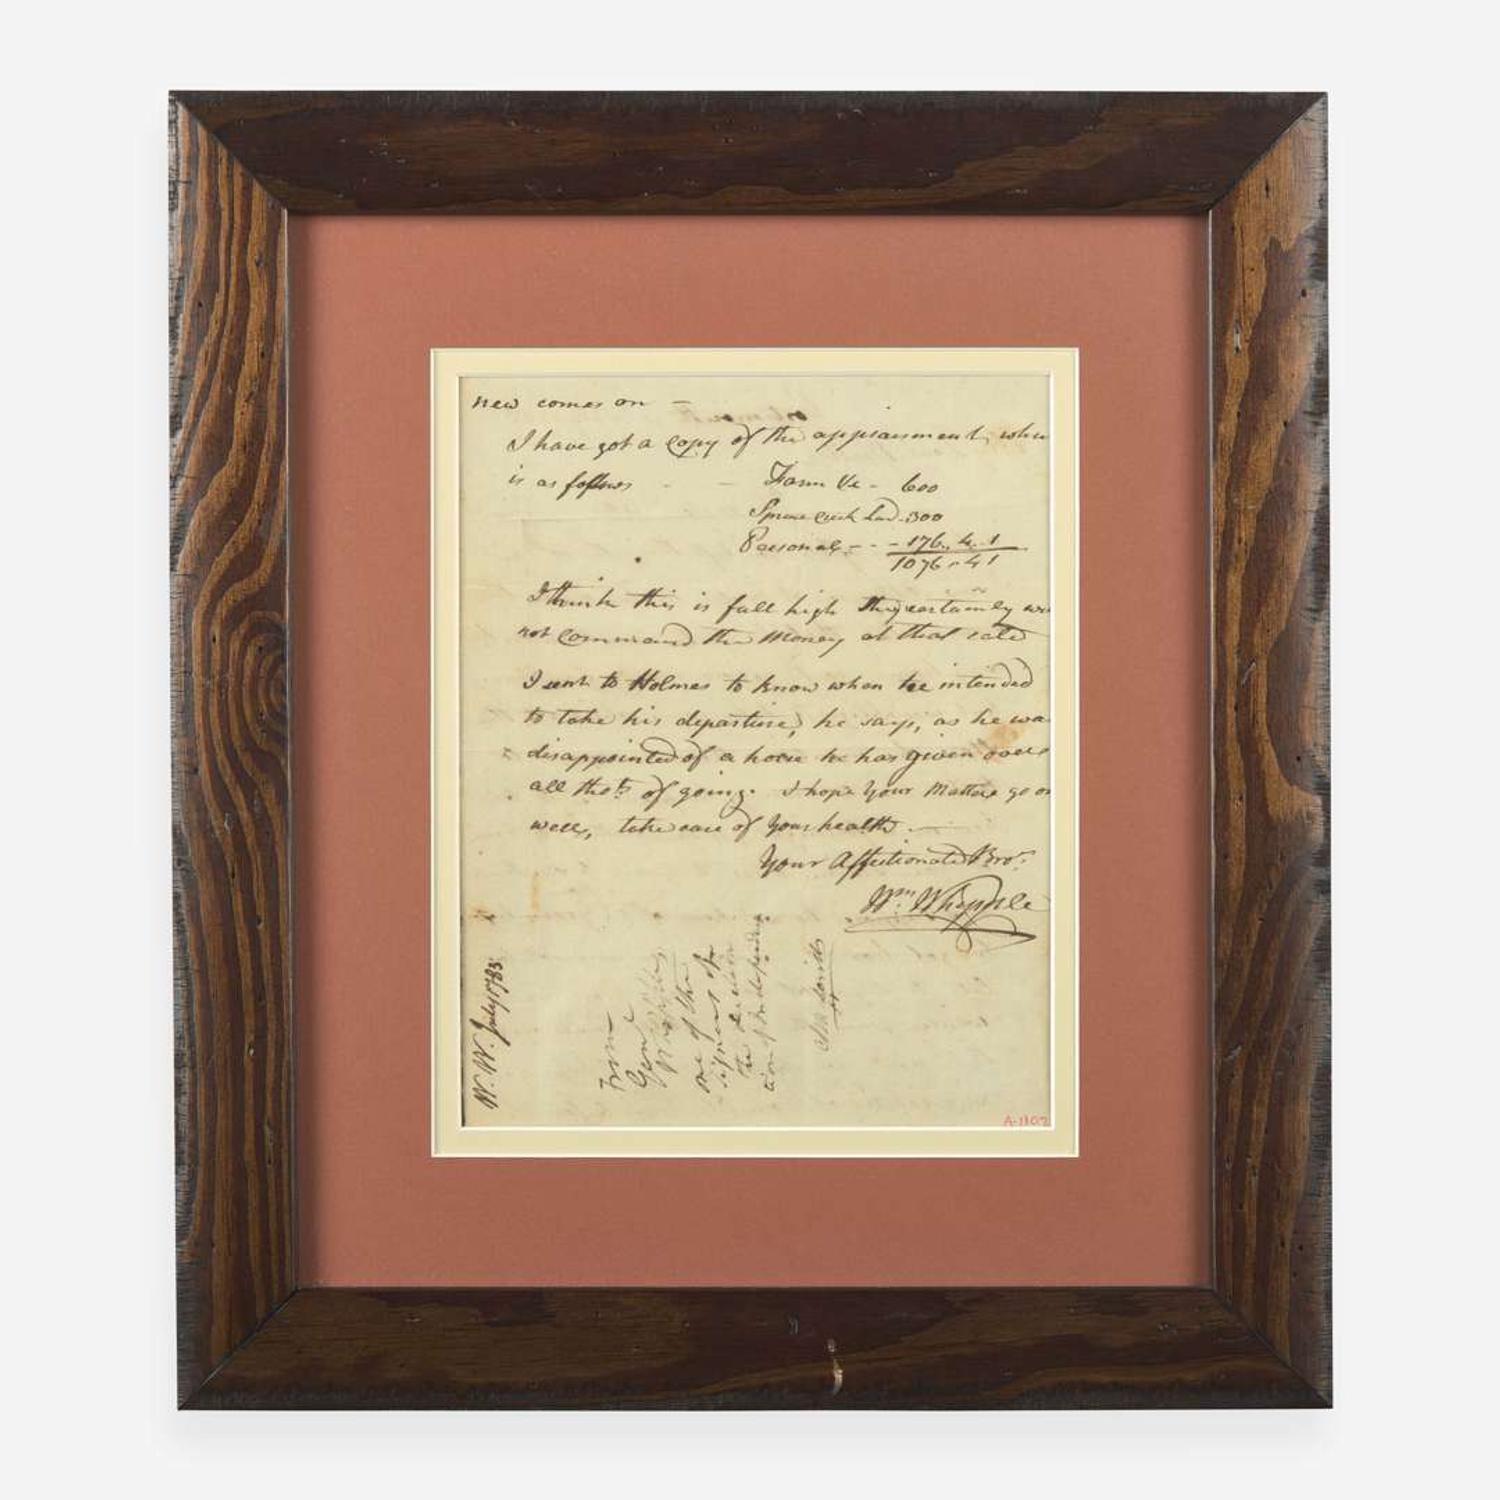 new comes on —
I have got a Copy of the appraisment, whi
is as follows - - Farm &c - 600
Spruce Creek Land - 300
Personal - - - 176, 4. 1
1076 " 4 1
I think this is full high they certainly wo
not Command the Money at that rate
I sent to Holmes to know when he intended
to take his departure, he says, as he wa
disappointed of a horse he has given over
all thots of going. I hope Your Matters go on
well, take care of Your health. —
Your Affectionate Bror.
Wm. Whipple
W. W. July 1783
From
Genl
Whipple
one of the
signers of
the declara
tion of Independence
A-1302